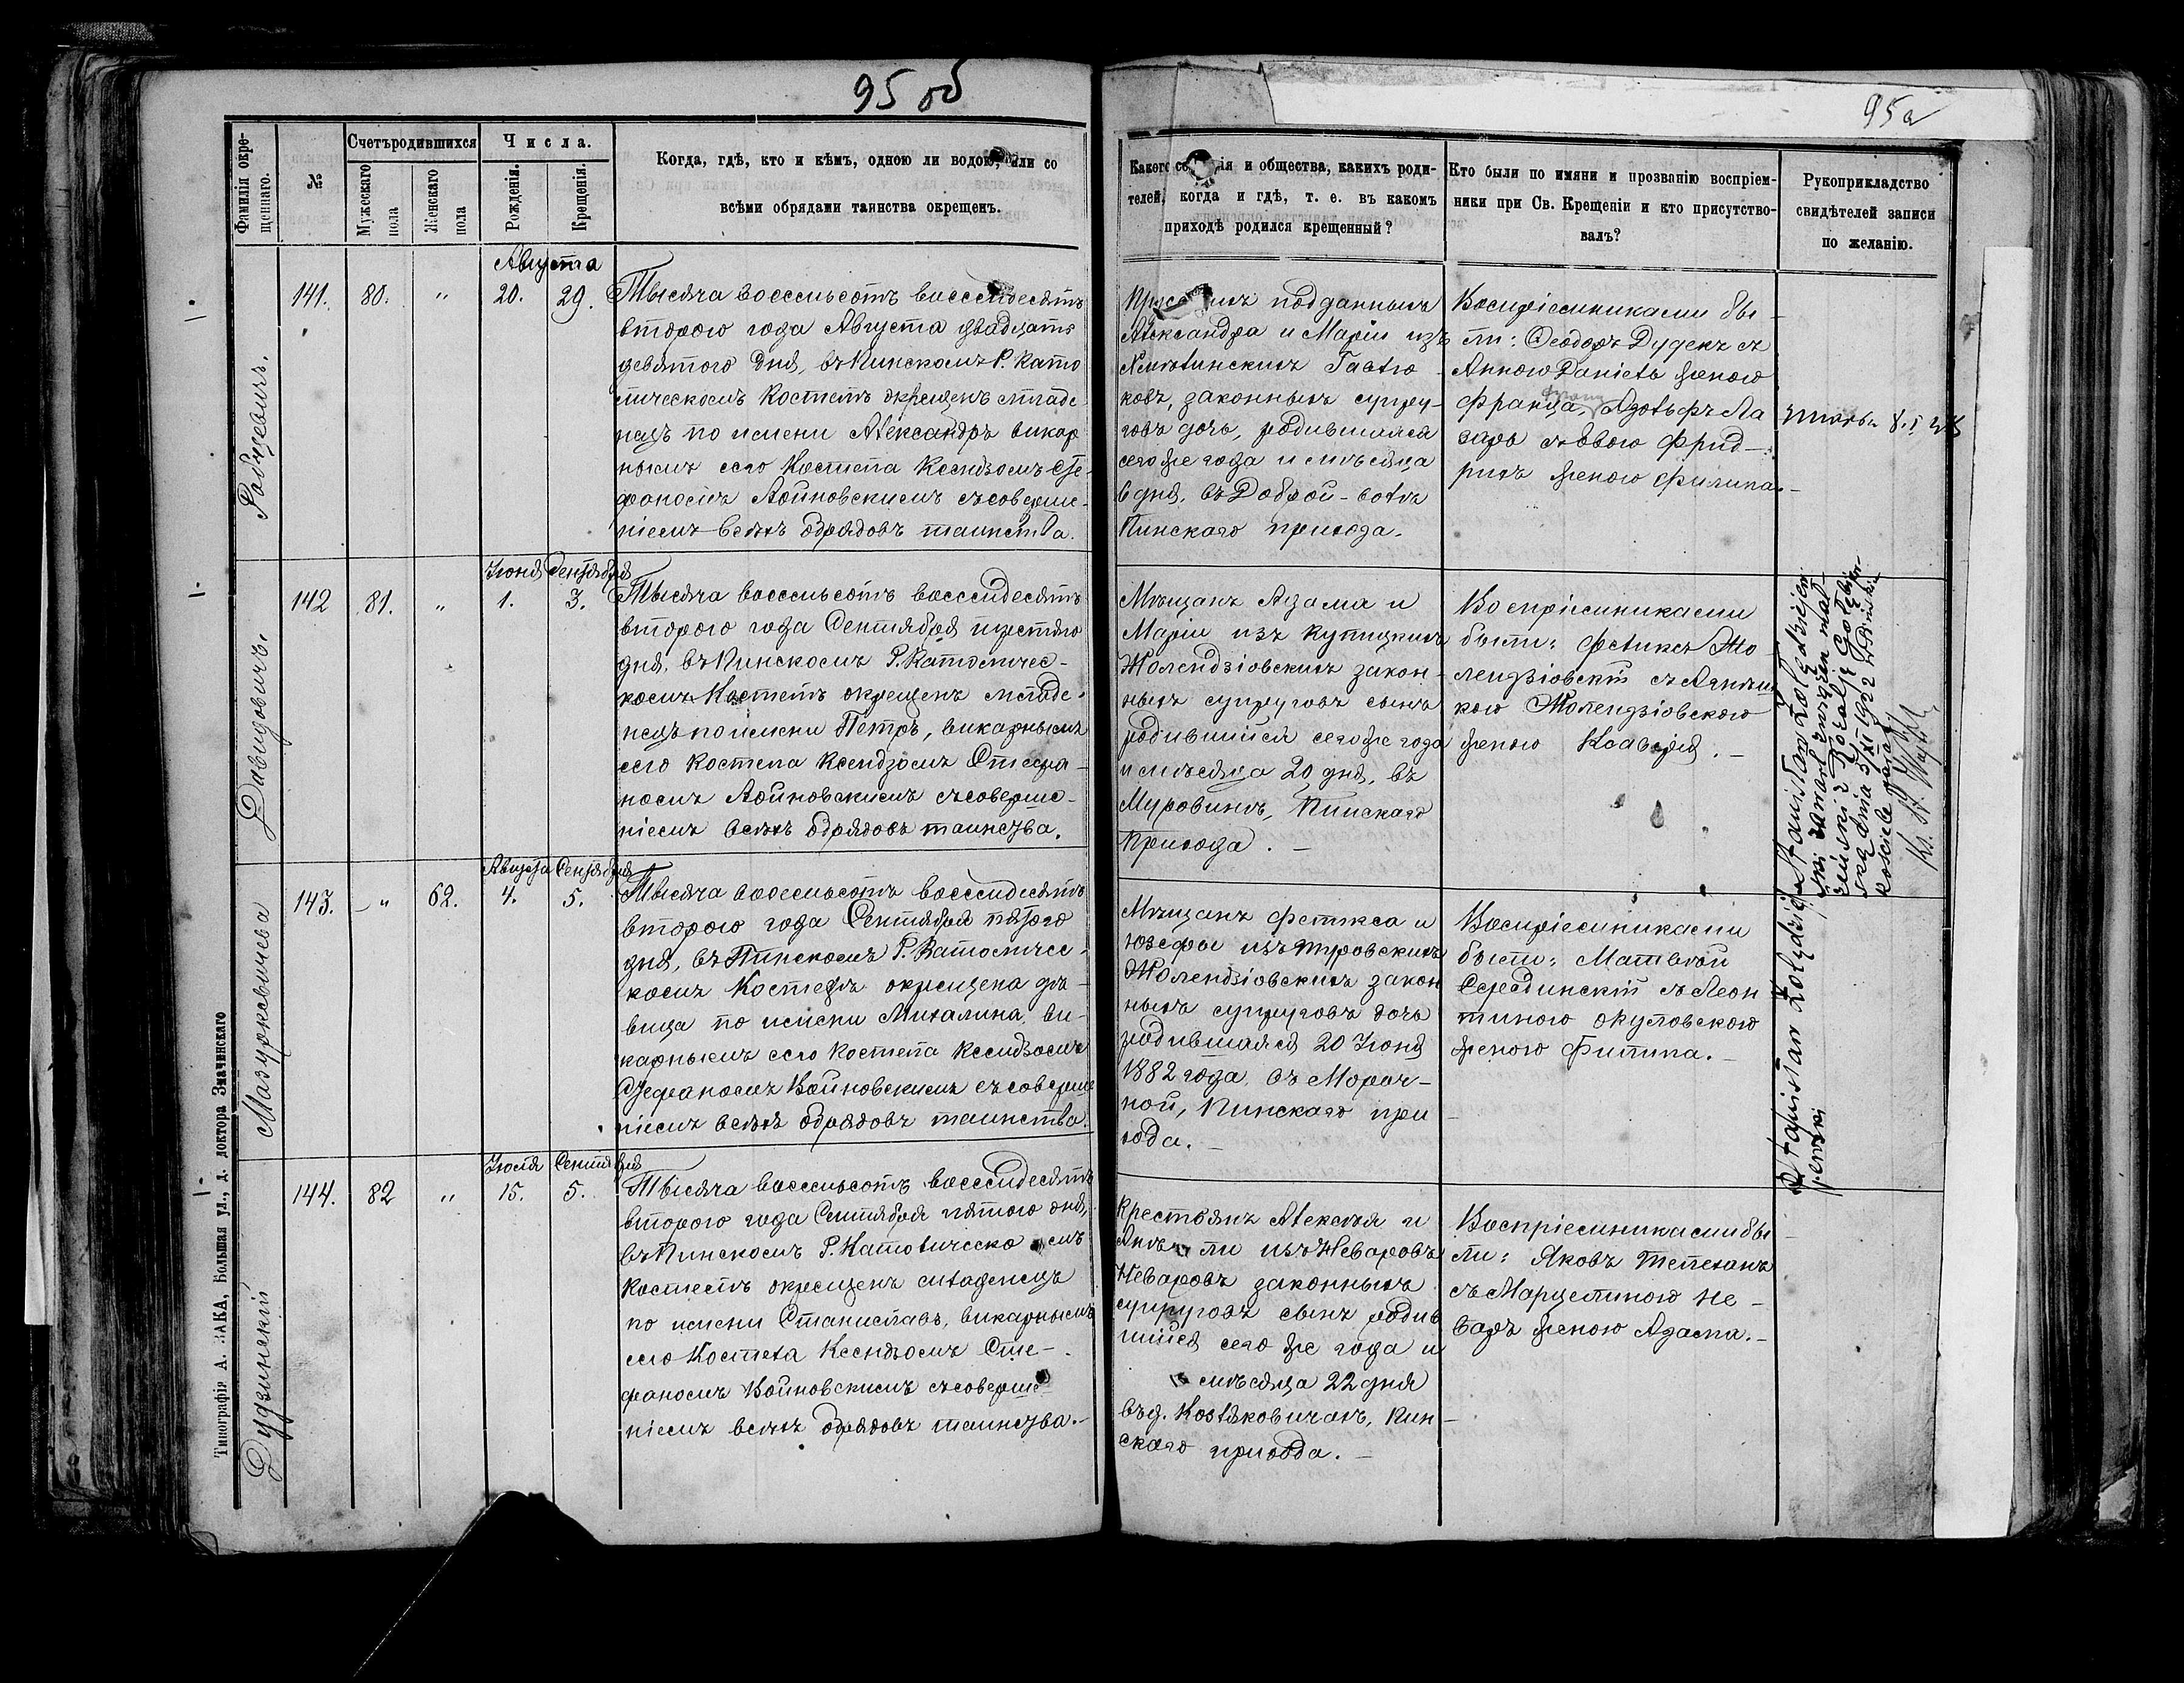 95 об
95а
Фамилія окре-
щеннаго.
№
Счетъродившихся
Мужескаго
пола
Женскаго
пола
Числа.
Рожденія.
Крещенія.
Когда, гдѣ, кто и кѣмъ, одною ли водою, или со
всѣми обрядами таинства окрещенъ.
Августа
141. 80. " 20. 29.
Тысяча восемьсотъ восемдесятъ
второго года Августа двадцать
девятого дня, въ Пинскомъ Р. Като
лическомъ Костелѣ окрещенъ младе
нецъ по имени Александръ викар
нымъ сего Костела Ксендзомъ Сте-
фаномъ Войновскимъ съ соверше-
ніемъ всѣхъ обрядовъ таинства.
Давидовичъ.
Іюня Сентября
142 81. " 1. 3.
Тысяча восемьсотъ восемдесятъ
второго года Сентября третяго
дня, въ Пинскомъ Р. Католичес-
комъ Костелѣ окрещенъ младе-
нецъ по имени Петръ, викарнымъ
сего Костела Ксендзомъ Стефа-
номъ Войновскимъ съ соверше-
ніемъ всѣхъ обрядовъ таинства.
Мазуркевичева
Августа Сентября
143. " 62. 4. 5.
Тысяча восемьсотъ восемдесятъ
второго года Сентября пятого
дня, въ Пинскомъ Р. Католичес-
комъ Костелѣ окрещена дѣ-
вица по имени Михалина, ви-
карнымъ сего Костела Ксендзомъ
Стефаномъ Войновскимъ съ соверше
ніемъ всѣхъ обрядовъ таинства.
Дудзинскій
Іюля Сентября
144. 82 " 15. 5.
Тысяча восемьсотъ восемдесятъ
второго года Сентября пятого дня,
въ Пинскомъ Р. Католическо мъ
Костелѣ окрещенъ младенецъ
по имени Станиславъ, викарнымъ
сего Костела Ксендзомъ Сте-
фаномъ Войновскимъ съ соверше
ніемъ всѣхъ обрядовъ таинства.
Типографія А. ЗАКА, Большая ул., д. доктора Значинскаго
Какого со ія и общества, какихъ роди-
телей, когда и гдѣ, т. е. въ какомъ
приходѣ родился крещенный?
Кто были по имяни и прозванію воспріем-
ники при Св. Крещеніи и кто присутство-
валъ?
Рукоприкладство
свидѣтелей записи
по желанію.
подданныхъ
Александра и Маріи изъ
ковъ, законныхъ супру-
говъ дочь, родившаяся
сего же года и мѣсяца
6 дня, въ Доброй-волѣ
Пинскаго прихода.
Воспріемниками бы-
ли: Ѳеодоръ Дуденъ съ
Анною Daniels женою
Франца, Адольфъ Ла
Фрид-
рихъ женою Филипа.
Мѣщанъ Адама и
Маріи изъ Купицкихъ
Жолендзіовскихъ закон-
ныхъ супруговъ сынъ
родившійся сего же года
и мѣсяца 20 дня, въ
Муровинѣ, Пинскаго
Прихода. -
Воспріемниками
были: Феликсъ Жо-
лендзіовскій съ
кою Жолендзіовскою
женою Ксаверія. -
Stanisław Żołędzi
dnia 3/XI 1922 w Pińskim
kościele
Мѣщанъ Феликса и
Юзефы изъ Туровскихъ
Жолендзіовскихъ закон
ныхъ супруговъ дочь
родившаяся 20 Іюня
1882 года, въ Мороч-
ной, Пинскаго при
хода. -
Воспріемниками
были: Матвѣй
Серединскій съ Леон
тиною Окуловскою
женою Филипа. -
Stanisław Żołędzi
Крестьянъ Алексѣя и
ли изъ Неваровъ
Неваровъ законныхъ
супруговъ сынъ родив
шійся сего же года и
мѣсяца 22 дня
въ д. Козляковичахъ, Пин-
скаго прихода. -
Воспріемниками бы
ли: Яковъ Телеханъ
съ Марцелиною Не-
варъ женою Адама. -